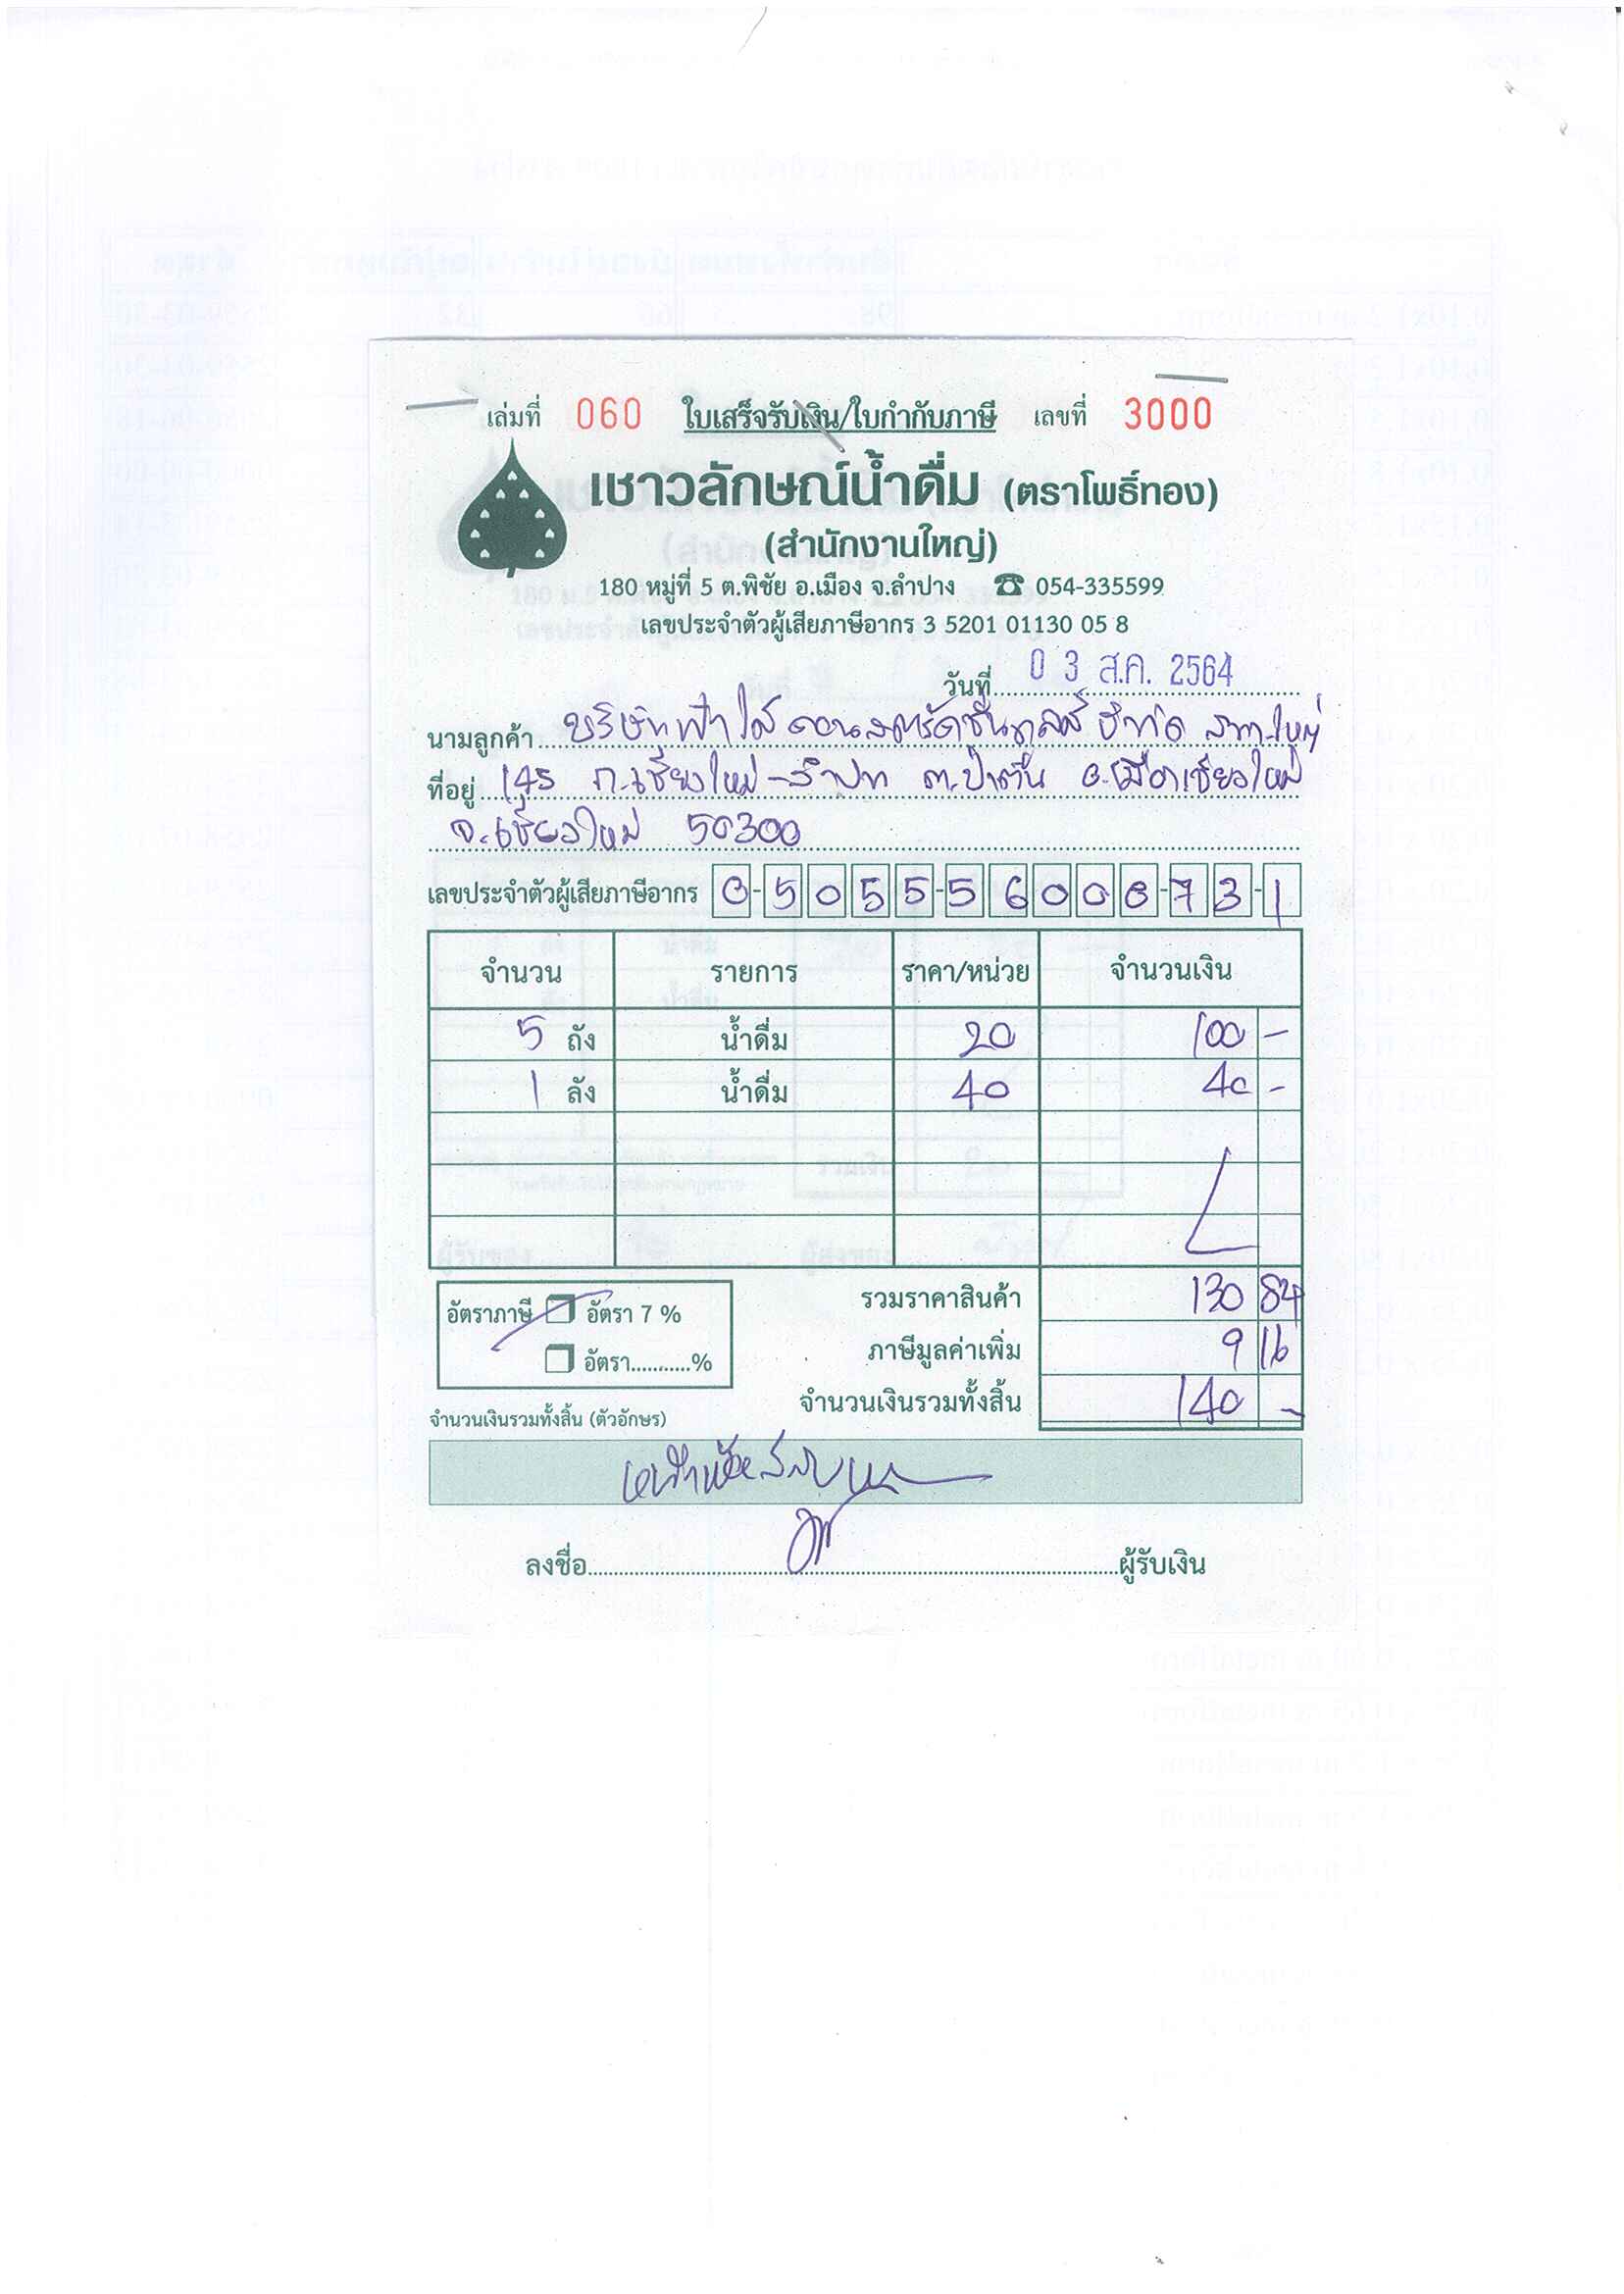 เล่มที่ 060 ใบเสร็จรับเงิน/ใบกำกับภาษี เลขที่ 3000
เชาวลักษณ์น้ำดื่ม (ตราโพธิ์ทอง)
(สำนักงานใหญ่)
180 หมู่ที่ 5 ต.พิชัย อ.เมือง จ.ลำปาง ☎ 054-335599
เลขประจำตัวผู้เสียภาษีอากร 3 5201 01130 05 8
วันที่ 03 ส.ค. 2564
นามลูกค้า บริษัท ฟ้าใส คอนสตรัคชั่น จำกัด
ที่อยู่ 145 ถ.เชียงใหม่-ลำปาง ต.ป่าตัน อ.เมืองเชียงใหม่
จ.เชียงใหม่ 50300
เลขประจำตัวผู้เสียภาษีอากร 0-5055-56000-73-1
จำนวน รายการ ราคา/หน่วย จำนวนเงิน
5 ถัง น้ำดื่ม 20 100 -
1 ลัง น้ำดื่ม 40 40 -
อัตราภาษี อัตรา 7 % รวมราคาสินค้า 130 84
อัตรา...........% ภาษีมูลค่าเพิ่ม 9 16
จำนวนเงินรวมทั้งสิ้น 140 -
จำนวนเงินรวมทั้งสิ้น (ตัวอักษร)
ลงชื่อ ผู้รับเงิน